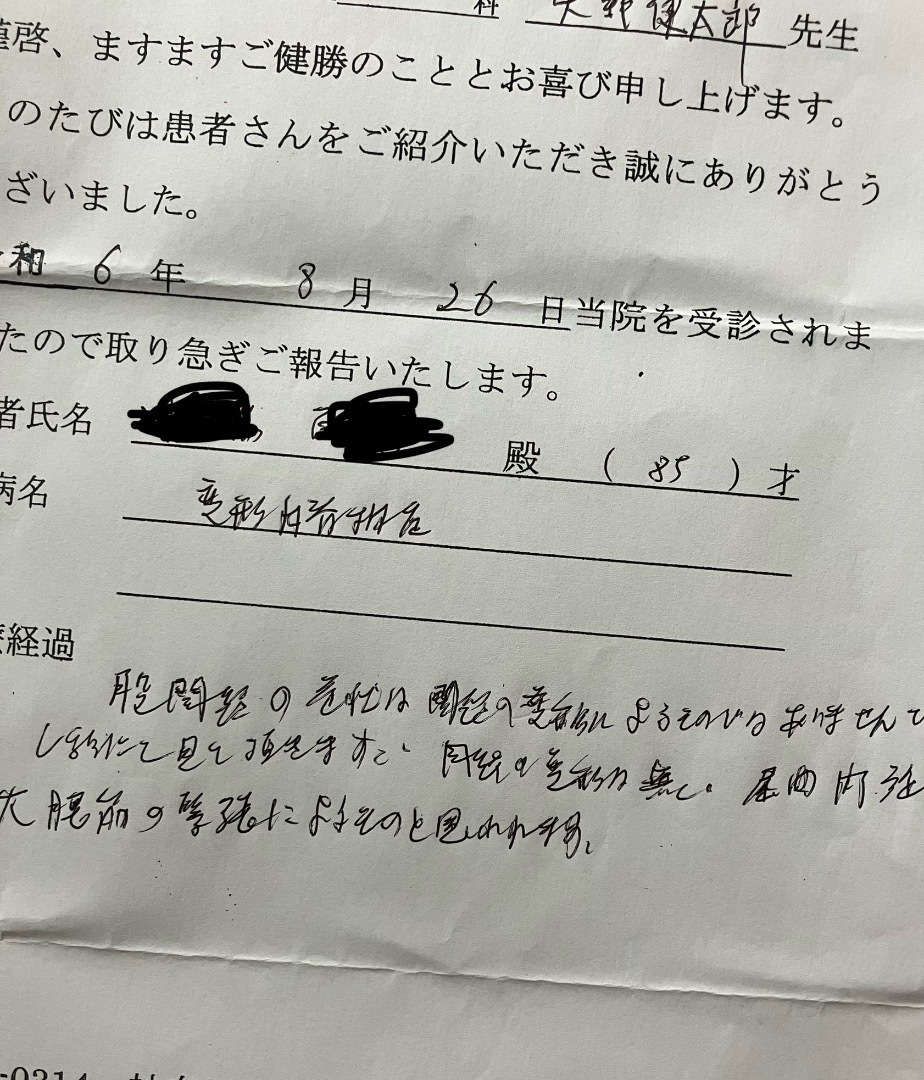 科 天野健太郎 先生
謹啓、ますますご健勝のこととお喜び申し上げます。
のたびは患者さんをご紹介いただき誠にありがとう
ざいました。
和 6 年 8 月 26 日当院を受診されま
たので取り急ぎご報告いたします。
者氏名 殿 ( 85 ) 才
病名 変形性脊椎症
経過
股関節の症状は関節の変形によるものではありませんで
して見て頂きますと、関節の変形は無し。屈曲内
大腿筋の緊張によるものと思われます。